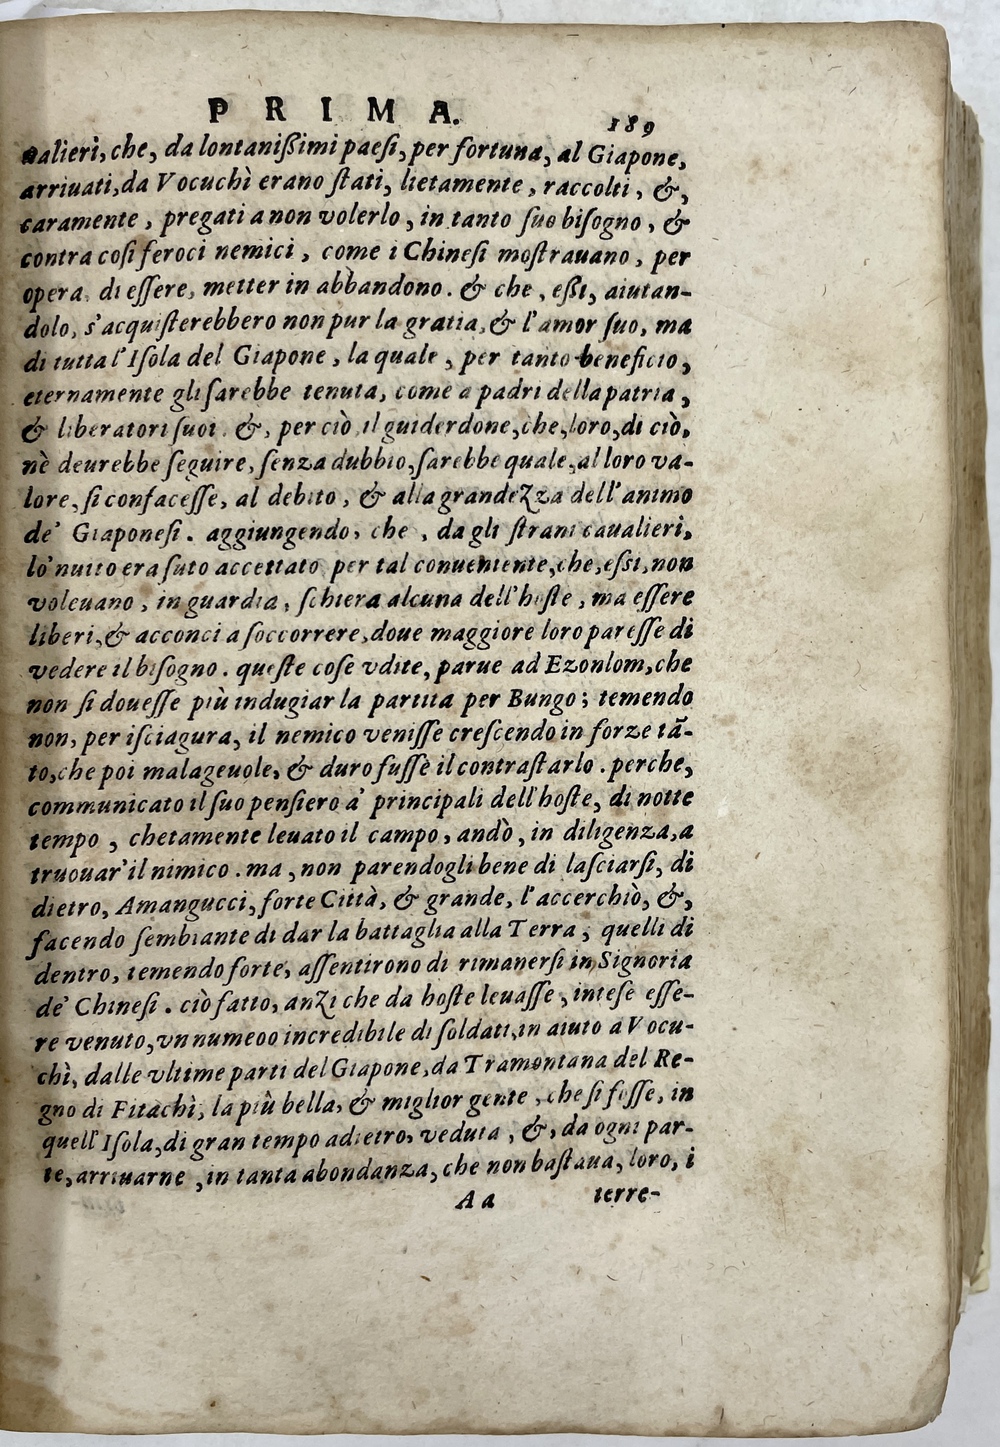 PRIMA.
189
ualieri, che, da lontanißimi paesi, per fortuna, al Giapone,
arriuati, da Vocuchì erano stati, lietamente, raccolti, &,
caramente, pregati a non volerlo, in tanto suo bisogno, &
contra cosi feroci nemici, come i Chinesi mostrauano, per
opera, di essere, metter in abbandono. & che, eßi, aiutan-
dolo, s'acquisterebbero non pur la gratia, & l'amor suo, ma
di tutta l'Isola del Giapone, la quale, per tanto beneficio,
eternamente gli sarebbe tenuta, come a padri della patria,
& liberatori suoi. &, per ciò, il guiderdone, che, loro, di ciò,
nè deurebbe seguire, senza dubbio, sarebbe quale, al loro va-
lore, si confacesse, al debito, & alla grandezza dell'animo
de' Giaponesi. aggiungendo, che, da gli strani caualieri,
lo'nuito era suto accettato per tal conuenente, che, essi, non
voleuano, in guardia, schiera alcuna dell'hoste, ma essere
liberi, & acconci a soccorrere, doue maggiore loro paresse di
vedere il bisogno. queste cose vdite, parue ad Ezonlom, che
non si douesse più indugiar la partita per Bungo; temendo
non, per isciagura, il nemico venisse crescendo in forze tā-
to, che poi malageuole, & duro fusse il contrastarlo. perche,
communicato il suo pensiero a' principali dell'hoste, di notte
tempo, chetamente leuato il campo, andò, in diligenza, a
truouar'il nimico. ma, non parendogli bene di lasciarsi, di
dietro, Amangucci, forte Città, & grande, l'accerchiò, &,
facendo sembiante di dar la battaglia alla Terra, quelli di
dentro, temendo forte, assentirono di rimanersi in Signoria
de' Chinesi. ciò fatto, anzi che da hoste leuasse, intese esse-
re venuto, vn numeoo incredibile di soldati, in aiuto a Vocu-
chì, dalle vltime parti del Giapone, da Tramontana del Re-
gno di Fitachì, la più bella, & miglior gente, che si fosse, in
quell'Isola, di gran tempo adietro, veduta, &, da ogni par-
te, arriuarne, in tanta abondanza, che non bastaua, loro, i
Aa terre-